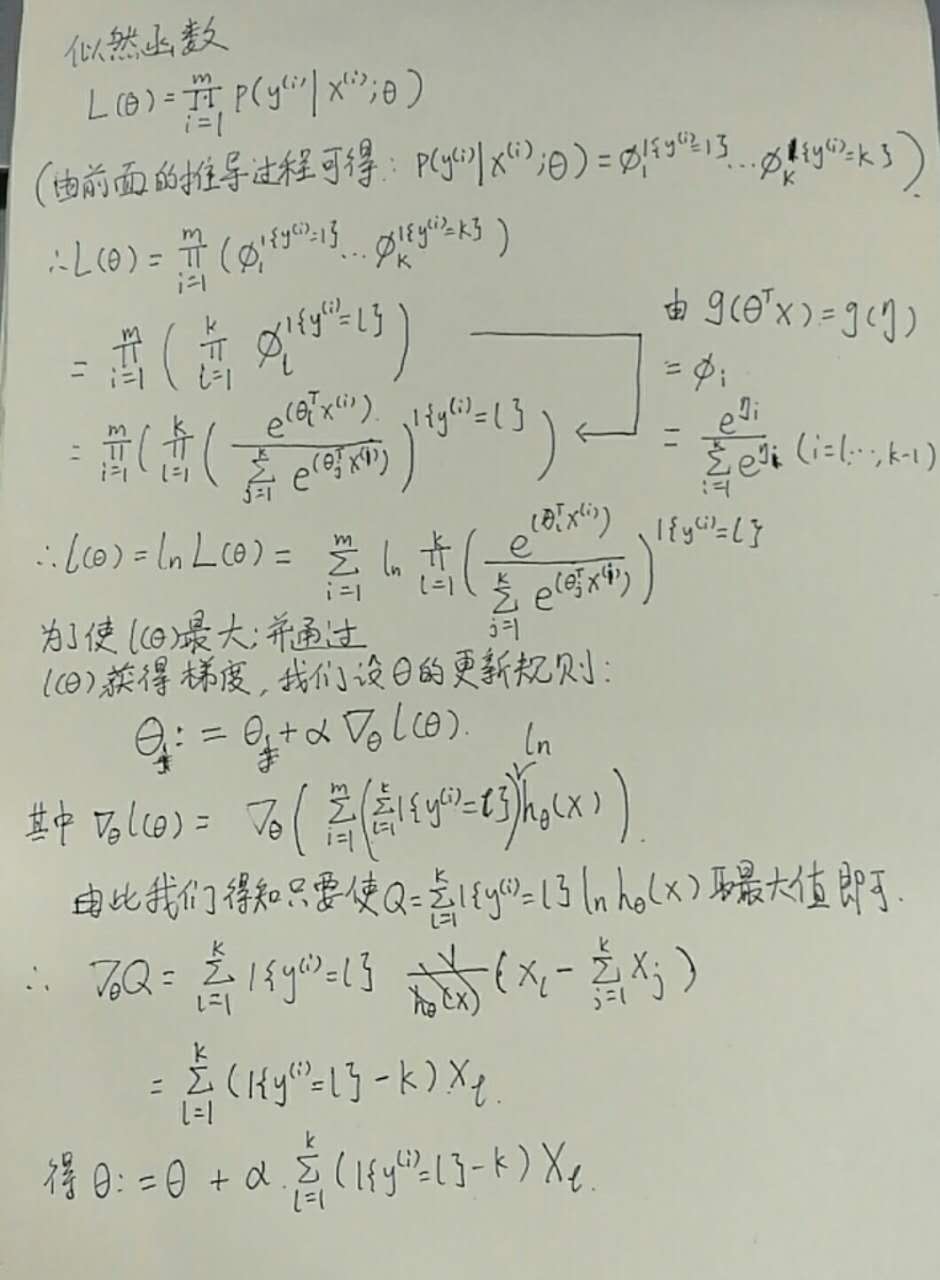 似然函数
L(θ) = ∏_{i=1}^{m} P(y^{(i)} | x^{(i)}; θ)
(由前面的推导过程可得: P(y^{(i)} | x^{(i)}; θ) = φ_1^{1{y^{(i)}=1}} … φ_k^{1{y^{(i)}=k}})
∴ L(θ) = ∏_{i=1}^{m} (φ_1^{1{y^{(i)}=1}} … φ_k^{1{y^{(i)}=k}})
= ∏_{i=1}^{m} ( ∏_{l=1}^{k} φ_l^{1{y^{(i)}=l}} )
= ∏_{i=1}^{m} ( ∏_{l=1}^{k} ( e^{(θ_l^T x^{(i)})} / ∑_{j=1}^{k} e^{(θ_j^T x^{(i)})} )^{1{y^{(i)}=l}} )
由 g(θ^T x) = g(η)
= φ_i
= e^{η_i} / ∑_{i=1}^{k} e^{η_i} (i=1…, k-1)
∴ l(θ) = ln L(θ) = ∑_{i=1}^{m} ln ∏_{l=1}^{k} ( e^{(θ_l^T x^{(i)})} / ∑_{j=1}^{k} e^{(θ_j^T x^{(i)})} )^{1{y^{(i)}=l}}
为了使 l(θ) 最大; 并通过
l(θ) 获得梯度, 我们设θ的更新规则:
θ := θ + α ∇_θ l(θ).
其中 ∇_θ l(θ) = ∇_θ ( ∑_{i=1}^{m} ( ∑_{l=1}^{k} 1{y^{(i)}=l} ) ln h_θ(x) ).
由此我们得知只要使 Q = ∑_{l=1}^{k} 1{y^{(i)}=l} ln h_θ(x) 取最大值即可.
∴ ∇_θ Q = ∑_{l=1}^{k} 1{y^{(i)}=l} (x_l - ∑_{j=1}^{k} x_j)
= ∑_{l=1}^{k} (1{y^{(i)}=l} - k) x_l.
得 θ := θ + α · ∑_{l=1}^{k} (1{y^{(i)}=l} - k) x_l.